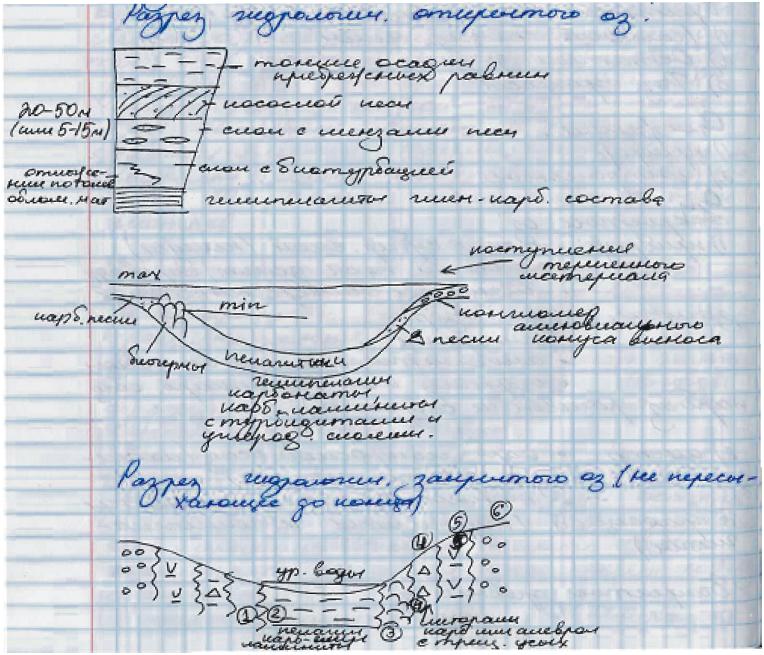 Разрез гидрологич. открытого оз.
тонкие осадки
прибрежных равнин
косослой песч
20-50м
(или 5-15м)
слои с линзами песч
слои с биотурбацией
отложе-
ния потоков
облом. мат
гемипелагиты глин-карб. состава
поступления
терригенного
материала
max
min
карб. пески
биогермы
конгломер
аллювиального
конуса выноса
Δ пески
пелагиты
гемипелагич
карбонаты,
карб. ламиниты
с турбидитами и
углерод. слоями.
Разрез гидрологич. закрытого оз (не пересы-
хающие до конца)
4 5 6
ур. воды
1 2 3 4
пелагич
карб-глин
ламиниты
литорали
карб или алеврол
с трещ. усых